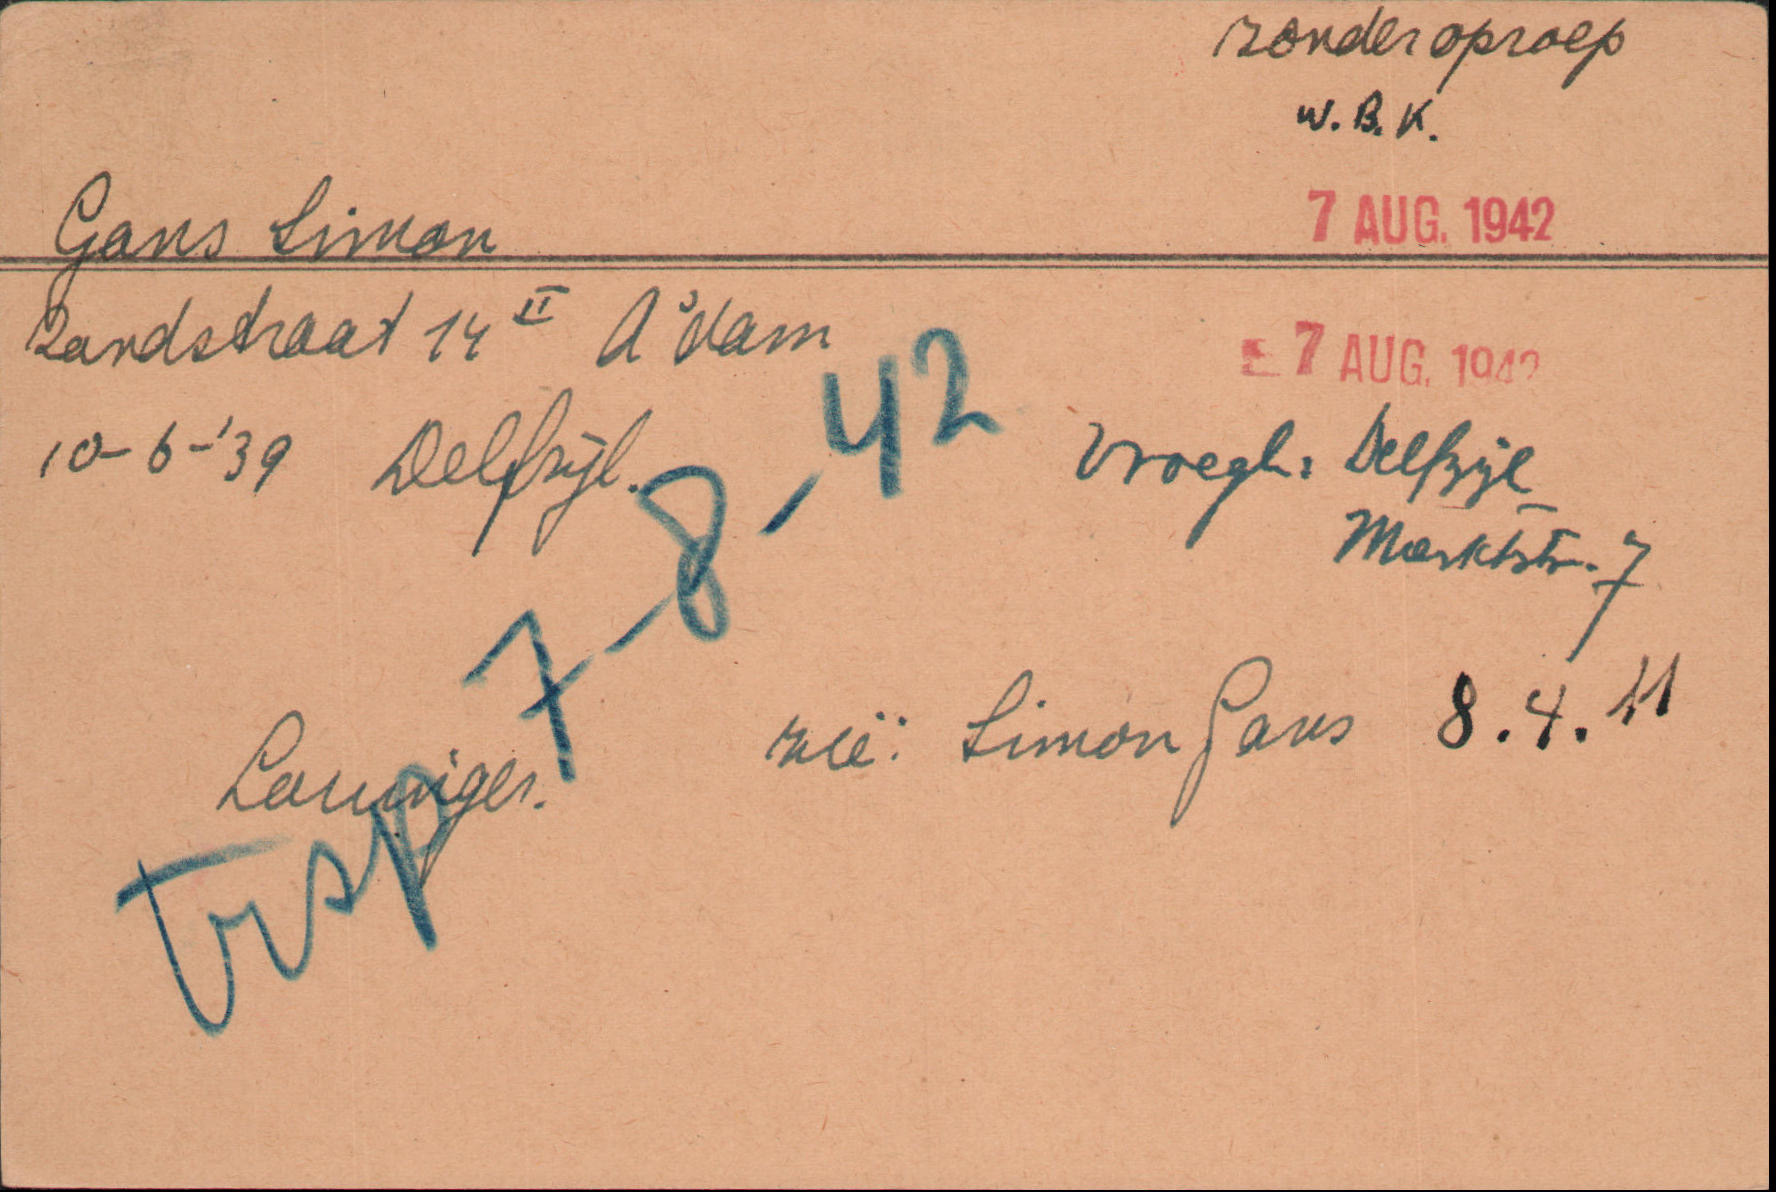 zonder oproep
W. B. K.
7 AUG. 1942
Gans Simon
Zandstraat 14 II A'dam
7 AUG. 1942
10-6-'39 Delfzijl.
Vroegh: Delfzijl
Marktstr. 7
trsp 7-8-42
zië: Simon Gans 8.4.11